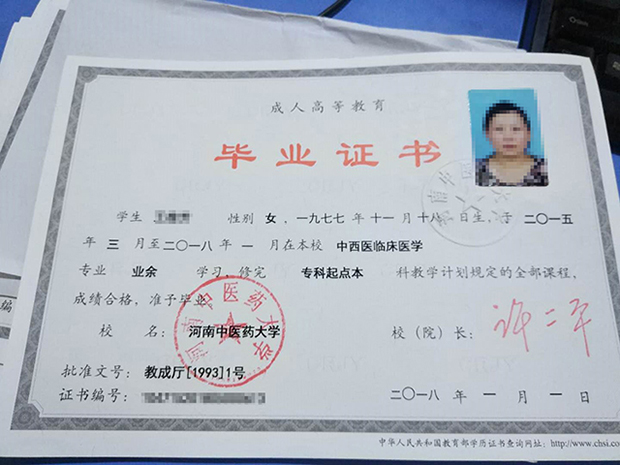 成人高等教育
毕业证书
学生 性别 女，一九七七年十一月十八日生，于二〇一五
年三月至二〇一八年一月在本校 中西医临床医学
专业 业余 学习，修完 专科起点本 科教学计划规定的全部课程，
成绩合格，准予毕业。
校 名：河南中医药大学
校（院）长：许二平
批准文号：教成厅[1993]1号
证书编号：
二〇一八年一月一日
中华人民共和国教育部学历证书查询网址：http://www.chsi.co
河南中医药大学
编